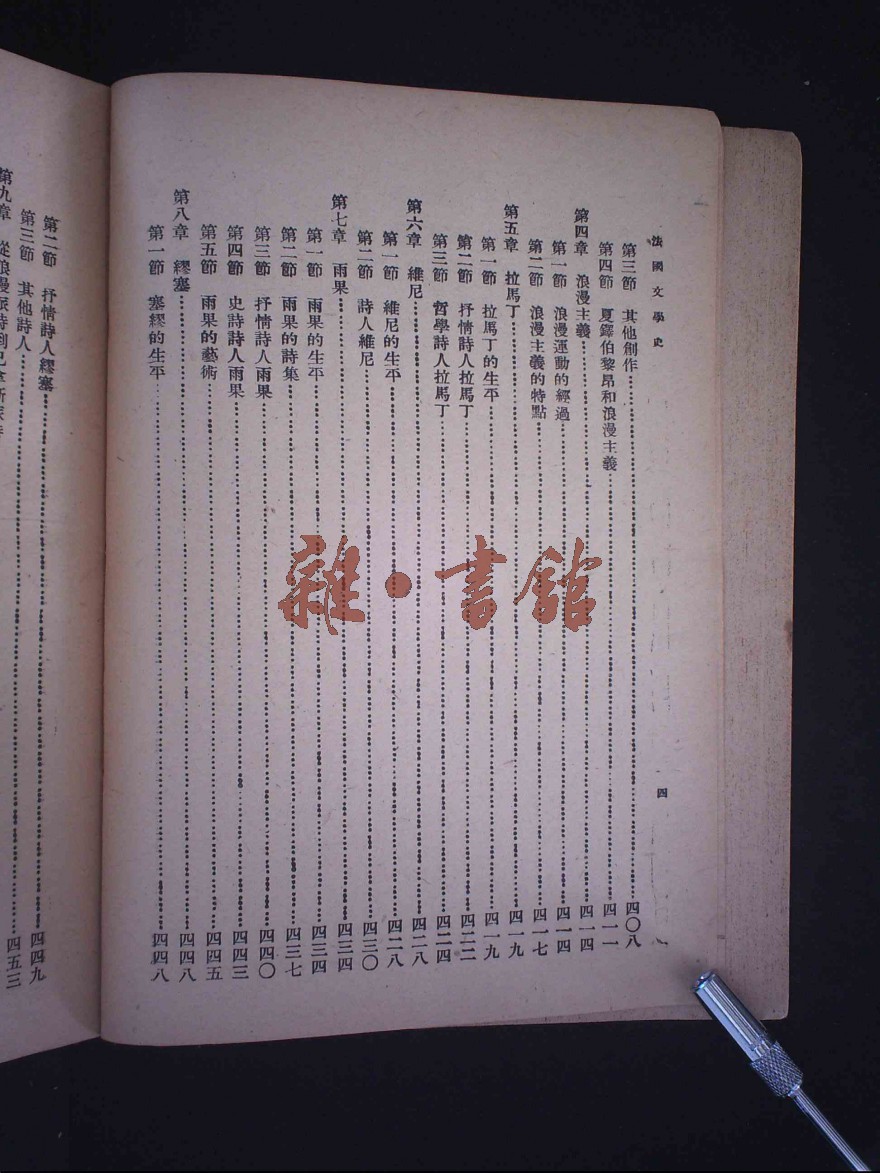 法國文學史
四
第三節 其他創作……四〇八
第四節 夏鐸伯黎昂和浪漫主義……四一一
第四章 浪漫主義……四一四
第一節 浪漫運動的經過……四一四
第二節 浪漫主義的特點……四一七
第五章 拉馬丁……四一九
第一節 拉馬丁的生平……四一九
第二節 抒情詩人拉馬丁……四二二
第三節 哲學詩人拉馬丁……四二四
第六章 維尼……四二八
第一節 維尼的生平……四二八
第二節 詩人維尼……四三〇
第七章 雨果……四三四
第一節 雨果的生平……四三四
第二節 雨果的詩集……四三七
第三節 抒情詩人雨果……四四〇
第四節 史詩詩人雨果……四四三
第五節 雨果的藝術……四四五
第八章 繆塞……四四八
第一節 塞繆的生平……四四八
第二節 抒情詩人繆塞……四四九
第三節 其他詩人……四五三
第九章 從浪漫派詩到巴拿斯派詩
雜·書館